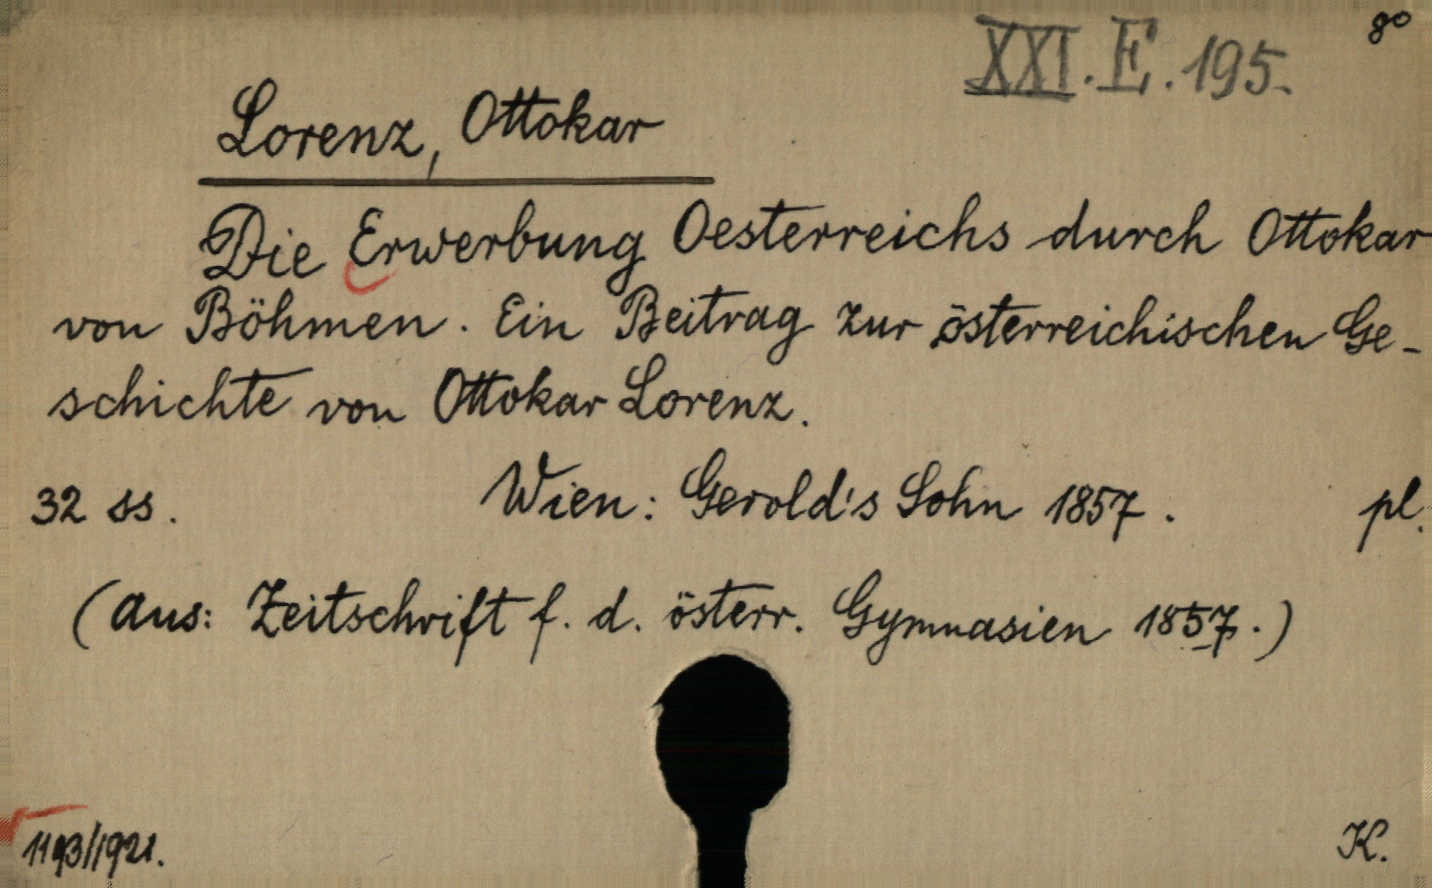 XXI. E. 195.
8°
Lorenz, Ottokar
Die Erwerbung Oesterreichs durch Ottokar
von Böhmen. Ein Beitrag zur österreichischen Ge-
schichte von Ottokar Lorenz.
32 ss. Wien: Gerold's Sohn 1857. pl.
(Aus: Zeitschrift f. d. österr. Gymnasien 1857.)
1193/1921. K.